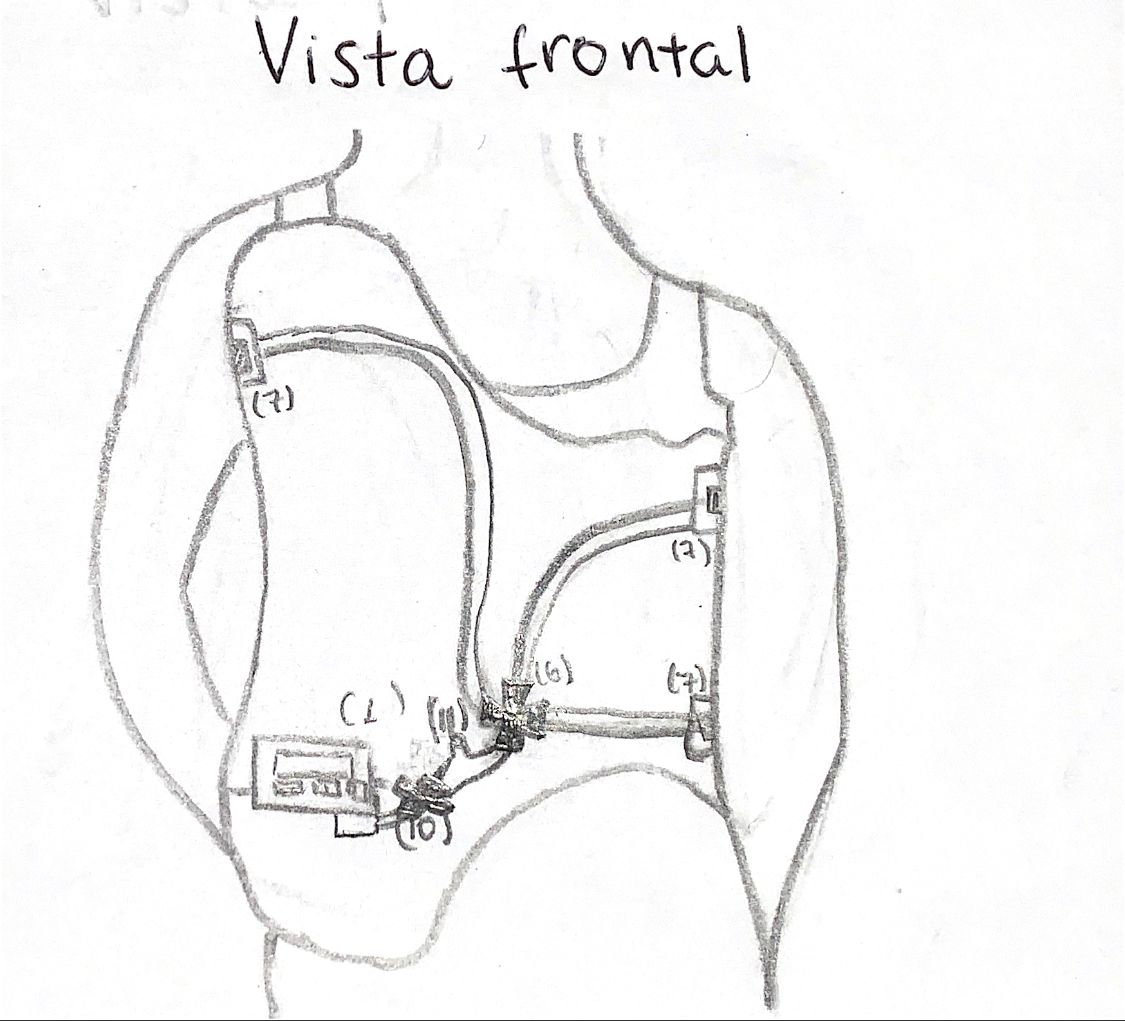 Vista frontal
(7)
(7)
(6)
(7)
(1)
(11)
(10)